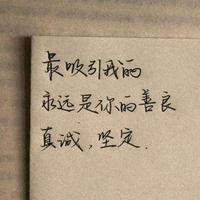 最吸引我的
永远是你的善良
真诚,坚定.